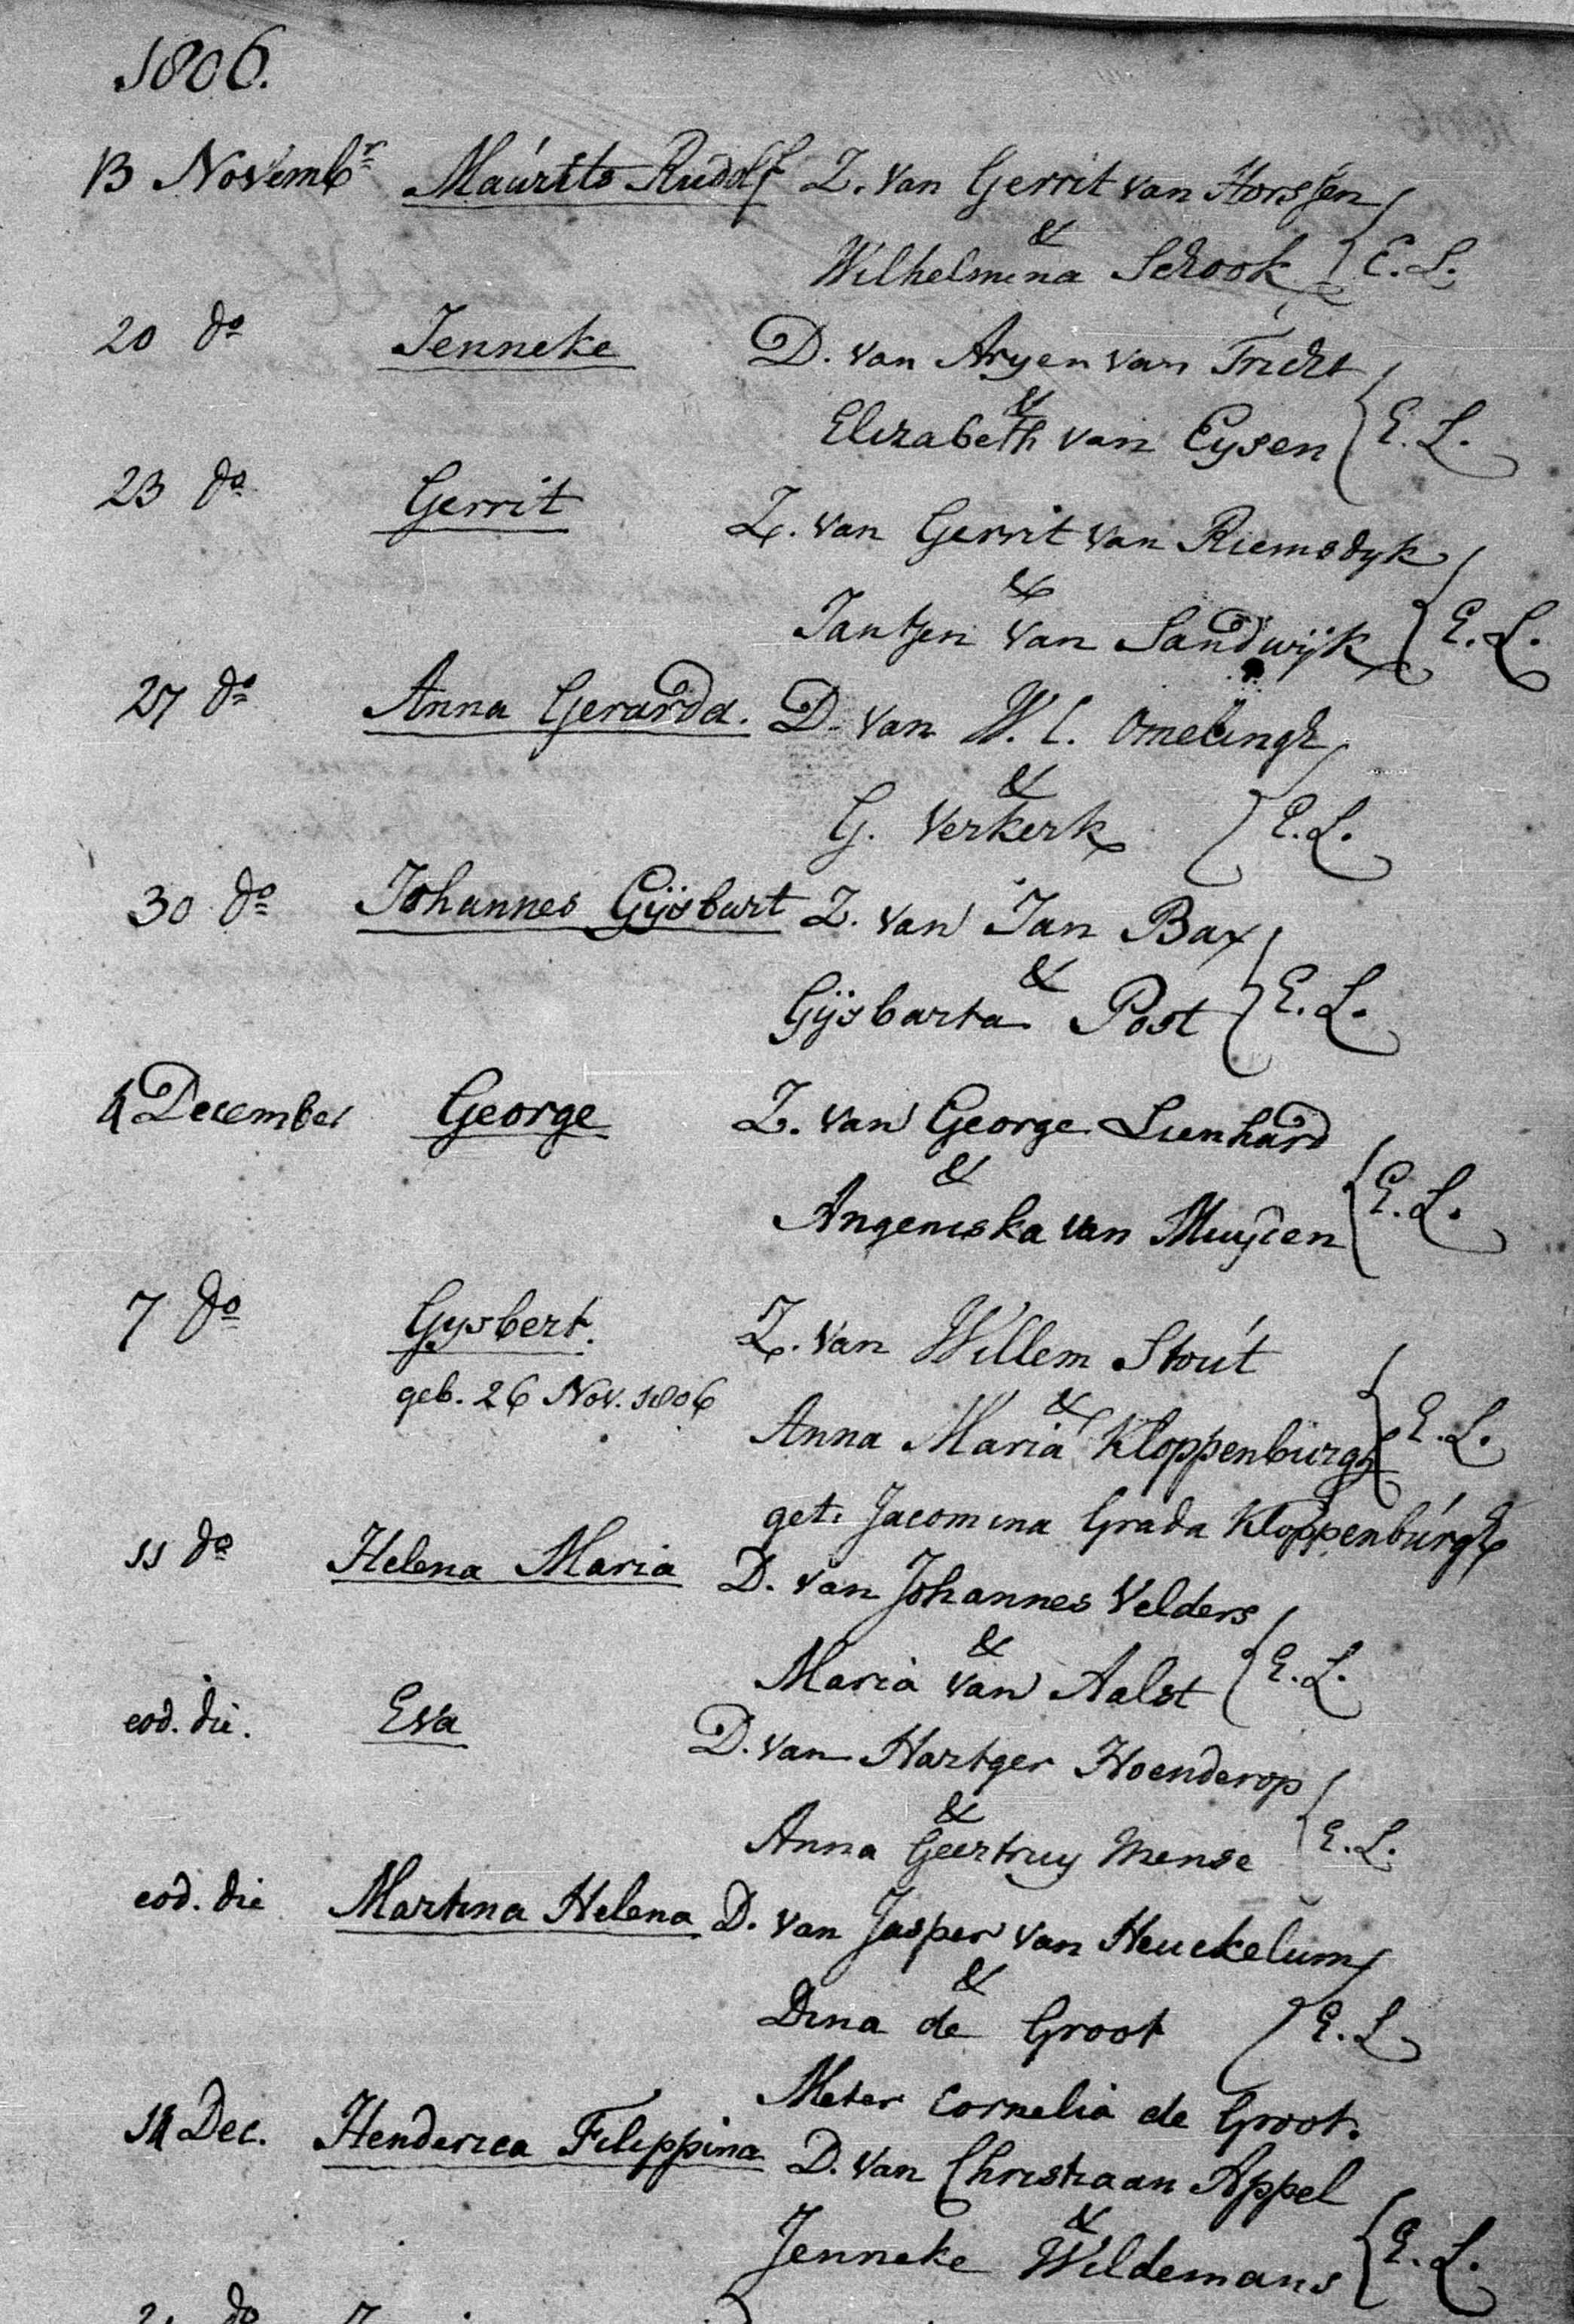 1806.
13 Novembr Maurits Rudolf Z. van Gerrit van Horssen
&
Wilhelmina Schook } E. L.
20 do Jenneke D. van Aryen van Tricht
&
Elizabeth van Eysen } E. L.
23 do Gerrit Z. van Gerrit van Riemsdyk
&
Jantjen van Sandwijk } E. L.
27 do Anna Gerarda. D. van W. C. Omelingh
&
G. Verkerk } E. L.
30 do Johannes Gijsbart Z. van Jan Bax
&
Gijsbarta Post } E. L.
4 December George Z. van George Lienhard
&
Angeniska van Muyden } E. L.
7 do Gysbert. Z. van Willem Stout
geb. 26 Nov. 1806
&
Anna Maria Kloppenburgh } E. L.
get. Jacomina Grada Kloppenburgh
11 do Helena Maria D. van Johannes Velders
&
Maria van Aalst } E. L.
eod. die. Eva D. van Hartger Hoenderop
&
Anna Geertruy Mense } E. L.
eod. die Martina Helena D. van Jasper van Heuckelum
&
Dina de Groot } E. L.
Meter Cornelia de Groot.
14 Dec. Henderica Filippina D. van Christiaan Appel
&
Jenneke Wildemans } E. L.